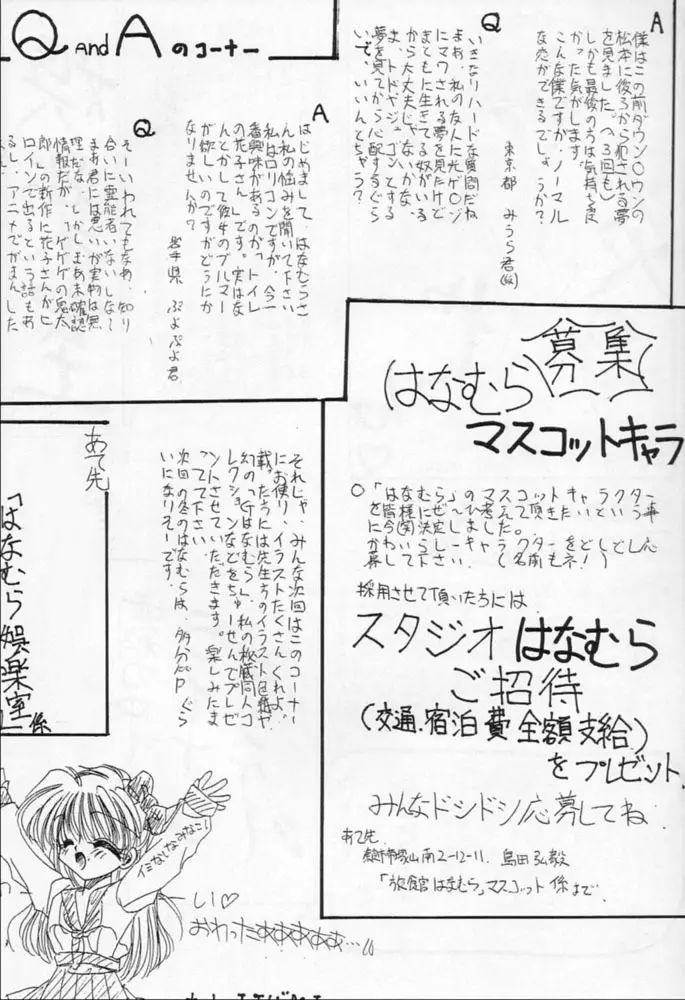 Q AND A のコーナー
A
僕はこの前ダウン〇ウンの
松本に後ろから犯される夢
を見ました。(3回も)
しかも最後のほうは気持ち良
かった気がします。
こんな僕ですが、ノーマル
な恋ができるでしょうか?
東京都 みうら君
Q
いきなりハードな質問だね
よぉ、私の友人に光ゲ〇ジ
にマワされる夢を見たけど
まともに生きてる奴がいる
から大丈夫じゃないかな。
夢を見てから心配するぐら
いで、いいんとちゃう?
A
はじめまして、はなむらさ
ん私の悩みを聞いて下さい
私はロリコンですが、今一
番興味があるのが、トイレ
の花子さんです。実はな
んとかして彼女のブルマー
が欲しいのですがどうにか
なりませんか?
岩手県 ぷよぷよ君
Q
そーいわれてもなぁ、知り
合いに霊能者いないしなぁ
まぁ君には悪いが実物は無
理だな、しかしまぁ未確認
情報だが、「ゲゲゲの鬼太
郎」の新作に花子さんがヒ
ロインで出るという話もあ
るし、アニメでがまんした
募集
はなむら
マスコットキャラ
○「はなむら」のマスコットキャラクター
を皆様にぜひ考えて頂きたいという事
に今(関)決定しました。
かわいらしーキャラクターをどしどし応
募して下さい。(名前もネ!)
採用させて頂いた方には
スタジオはなむら
ご招待
(交通.宿泊費全額支給)
をプレゼント
みんなドシドシ応募してね
あて先
南2-12-11 島田弘毅
「旅館はなむら」マスコット係まで
それじゃ、みんな次回はこのコーナー
にお便り、イラストたくさんくれよ。
載った方には先生方のイラスト色紙や
幻の「Gはなむら」、私の秘蔵同人コ
レクションなどをちゅーせんでプレゼ
ントさせていただきます。楽しみにま
ってて下さい。
次回の冬のはなむらは、多分
いになりそーです。
あて先
「はなむら娯楽室」係
しい♡
おわったああああぁ…